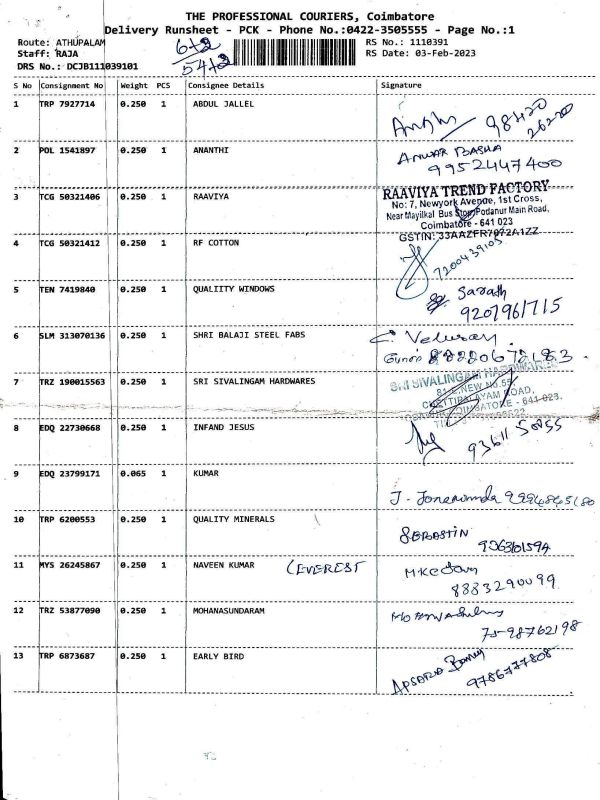 THE PROFESSIONAL COURIERS, Coimbatore
Delivery Runsheet - PCK - Phone No.:0422-3505555 - Page No.:1
Route: ATHUPALAM 6+2 RS No.: 1110391
Staff: RAJA 54+2 RS Date: 03-Feb-2023
DRS No.: DCJB111039101
S No Consignment No Weight PCS Consignee Details Signature
1 TRP 7927714 0.250 1 ABDUL JALLEL
98420
26220
2 POL 1541897 0.250 1 ANANTHI ANWAR BASHA
9952447400
3 TCG 50321406 0.250 1 RAAVIYA RAAVIYA TREND FACTORY
No: 7, Newyork Avenue, 1st Cross,
Near Mayilkal Bus Stop, Podanur Main Road,
Coimbatore - 641 023
GSTIN: 33AAZFR7072A1ZZ
4 TCG 50321412 0.250 1 RF COTTON
7200439105
5 TEN 7419840 0.250 1 QUALIITY WINDOWS Sarath
9207961715
6 SLM 313070136 0.250 1 SHRI BALAJI STEEL FABS
7 TRZ 190015563 0.250 1 SRI SIVALINGAM HARDWARES SRI SIVALINGAM HARDWARES
8 EDQ 22730668 0.250 1 INFAND JESUS
9 EDQ 23799171 0.065 1 KUMAR
10 TRP 6200553 0.250 1 QUALITY MINERALS SEBASTIN
11 MYS 26245867 0.250 1 NAVEEN KUMAR (EVEREST
8883290099
12 TRZ 53877090 0.250 1 MOHANASUNDARAM
75-98762198
13 TRP 6873687 0.250 1 EARLY BIRD APSARA
9786777808